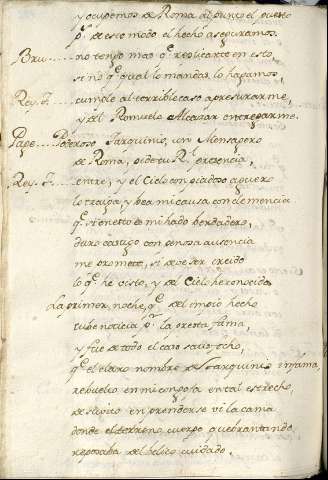 y ocupemos de Roma al punto el puerto
q̃ de este modo el hecho aseguramos.
Bru. no tengo mas q̃ replicarte en esto,
sino q̃ qual lo mandas, lo hagamos,
Rey. T. cumple al terrible caso apresurarme,
y del Romuleo Alcaçar entregarme.
Page. Poderoso Tarquinio, un Mensagero
de Roma, pide tu R. presencia,
Rey. T. entre, y el Cielo con piadoso aguero
lo traiga, y bea mi causa con clemencia
q̃ si en esto es mi hado berdadero,
duro castigo con penosa ausencia
me promete, si de ser creido
lo q̃ he visto, y del Cielo he conocido.
La primer, noche, q̃ del impio hecho
tube noticia pr la presta fama,
y fue de todo el caso satisfecho,
q̃ el claro nombre de Tarquinio infama,
rebuelto en mi congoja en tal estrecho
de supito en prenderse vi la cama
donde el terreno cuerpo quebrantando
reposaba del belico cuidado,